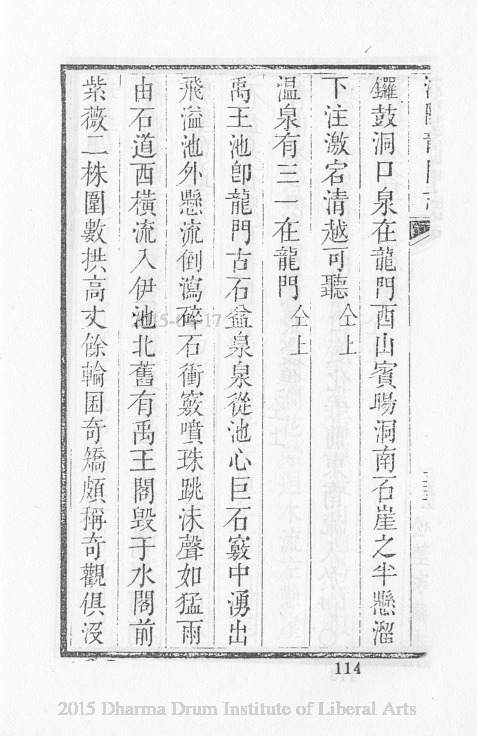 鑼鼓洞口泉在龍門西山賓暘洞南石崖之半懸溜
下注激宕清越可聽 仝上
温泉有三一在龍門 仝上
禹王池卽龍門古石盆泉泉從池心巨石竅中湧出
飛溢池外懸流倒瀉碎石衝竅噴珠跳沫聲如猛雨
由石道西橫流入伊池北舊有禹王閣毀于水閣前
紫薇二株圍數拱高丈餘輪囷奇矯頗稱奇觀俱沒
114
2015 Dharma Drum Institute of Liberal Arts